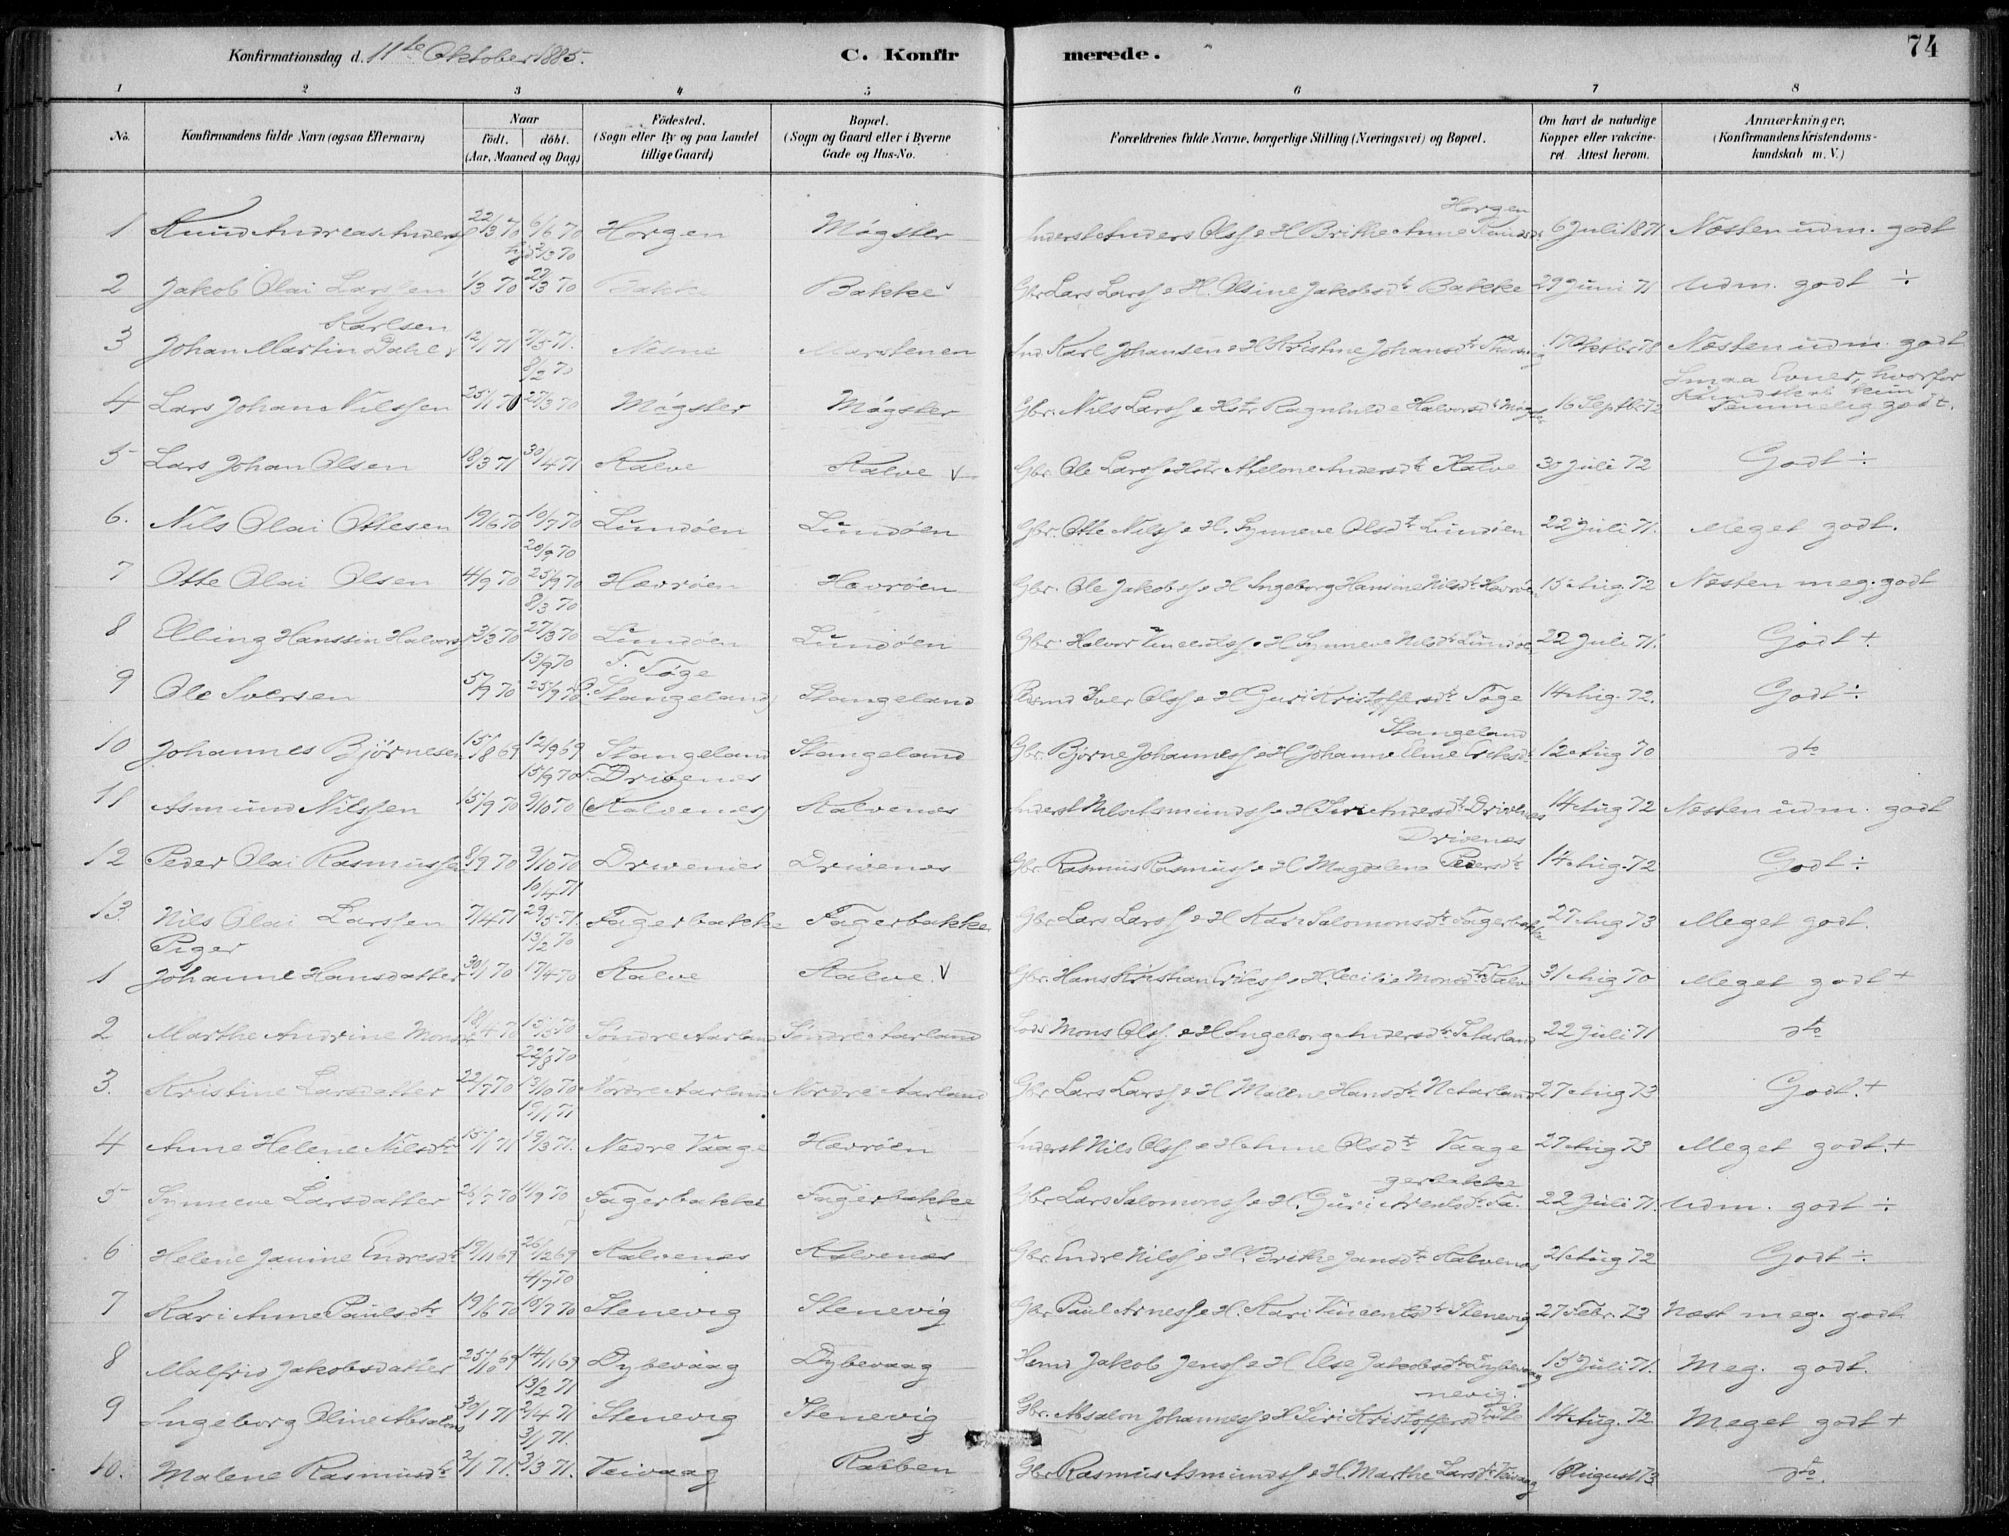 Konfirmationsdag d. 11te Oktober 1885.
C. Konfirmerede.
74
1 2 3 4 5 6 7 8
No. Konfirmandens fulde Navn (ogsaa Efternavn) Naar födt. döbt. (Aar, Maaned og Dag) Födested. (Sogn eller By og paa Landet tillige Gaard) Bopæl. (Sogn og Gaard eller i Byerne Gade og Hus-No. Forældrenes fulde Navne, borgerlige Stilling (Næringsvei) og Bopæl. Om havt de naturlige Kopper eller vakcineret. Attest herom. Anmærkninger, (Konfirmandens Kristendomskundskab m. V.)
1 Knud Andreas Anders 22/3 70 6/6 70 Horgen Møgster Anders Olss e H Brithe Anne Horgen 6 Juli 1871 Næsten udm. godt
2 Jakob Olai Larssen 1/3 70 27/3 70 Bakke Bakke Gbr Lars Larss e H. Olsine Jakobsdtr Bakke 29 Juni 71 Udm. godt ÷
3 Johan Martin Dahl Karlsen 12/1 71 7/5 71. Nesne Marstenen Karl Johansen e H Kristine Johansdtr Næsten udm. godt
8/2 70
4 Lars Johan Nilssen 25/1 70 27/3 70 Møgster Møgster Gbr. Nils Larss e Hstr Ragnhilde Halvorsdtr 16 Septbr 72 Smaa Evner, hvorfor Kundskab kun temmelig godt.
5 Lars Johan Olsen 18/3 71 30/4 71 Kalve Kalve V Gbr. Ole Larss e Hstr Abelone Andersdtr Kalve 30 Juli 72 Godt ÷
6. Nils Olai Ottesen 19/6 70 10/7 70 Lundøen Lundøen Gbr. Otte Nilss e H. Synneve Olsdtr Lundøen 22 Juli 71. Meget godt.
20/9 70
7 Otte Olai Olsen 4/9 70 25/9 70 Hævrøen Hævrøen Gbr. Ole Jakobss e H Ingeborg Hansine Nilsdtr Hævrøen 15 Aug. 72 Næsten meg. godt
8/3 70
8 Elling Hanssin Halvors 3/3 70 27/3 70 Lundøen Lundøen Gbr. Halvor e H Synneve Nilsdtr Lundøe 22 Juli 71. Godt +
13/9 70 F. Tøge
9 Ole Iversen 5/9 70 25/9 70 (Stangeland) Stangeland Iver Olss e H Guri Kristoffersdtr Tøge 14 Aug. 72. Godt ÷
Stangeland
10 Johannes Bjørnesen 15/8 69 12/9 69 Stangeland Stangeland Gbr. Bjørne Johanness e H Johanne Eline 12 Aug 70 dto
15/9 70 F. Drivenes
11 Asmund Nilssen 15/9 70 9/10 70 (Kalvenes) Kalvenes Inderst Nils Asmundss e H Siri Andersdtr Drivenes 14 Aug 72 Næsten udm. godt
Drivenes
12 Peder Olai Rasmussen 8/9 70 9/10 70 Drivenes Drivenes Gbr Rasmus Rasmuss e H Magdalena Pedersdtr 14 Aug. 72 Godt ÷
10/4 71
13. Nils Olai Larssen 7/4 71 29/5 71. Fagerbakke Fagerbakke Gbr Lars Larss e H Kari Salomonsdtr Fagerbakke 27 Aug 73 Meget godt.
Piger 13/2 70
1 Johanne Hansdatter 30/1 70 17/4 70 Kalve Kalve. V Gbr. Hans Kristian Erikss e H. Cecilie Monsdtr Kalve 31 Aug 70 Meget godt +
2 Marthe Andrine Monsdtr 18/4 70 15/5 70 Søndre Aarland Søndre Aarland Lods Mons Olss. e H Ingeborg Andersdtr S. Aarland 22 Juli 71 dto
22/8 70
3. Kristine Larsdatter 22/7 70 13/10 70 Nordre Aarland Nordre Aarland Gbr Lars Larss e H Malene Hansdtr N. Aarland 27 Aug 73 Godt. +
19/1 71
4 Anne Helene Nilsdtr 15/1 71 19/3 71. Nedre Vaage Hævrøen Inderst Nils Olss e H Anne Olsdtr Vaage 27 Aug 73 Meget godt. +
gerbakke
5 Synneve Larsdatter 26/7 70 11/9 70 Fagerbakke Fagerbakke Gbr Lars Salomonss e H. Guri Arentsdtr Fa. 22 Juli 71. Udm. godt ÷
6 Helene Janine Endresdtr 19/11 69 26/12 69 Kalvenes Kalvenes Gbr. Endre Nilss e H. Brithe Jansdtr Kalvenes 21 Aug 72 Godt ÷
4/7 70
7 Kari Anne Paulsdtr 19/6 70 10/7 70 Stenevig Stenevig Gbr Paul Arness e H. Kari Vincentsdtr Stenevig 27 Febr. 73 Næst meg. godt
8 Malfrid Jakobsdatter 25/10 69 14/11 69 Dybevaag Dybevaag Hsmd Jakob Jenss e H Else Jakobsdtr Dybevaag 15 Juli 71. Meg. godt.
13/2 71 nevig.
9 Ingeborg Oline Absalons 30/1 71 2/4 71 Stenevig Stenevig Gbr. Absalon Johanness e H Siri Kristoffersdtr Ste 14 Aug. 72 Meget godt +
3/1 71.
10. Malene Rasmusdtr 2/1 71. 3/3 71. Veivaag Rabben Gbr Rasmus Asmundss e H. Marthe Larsdtr Veivaag August 73 dto.